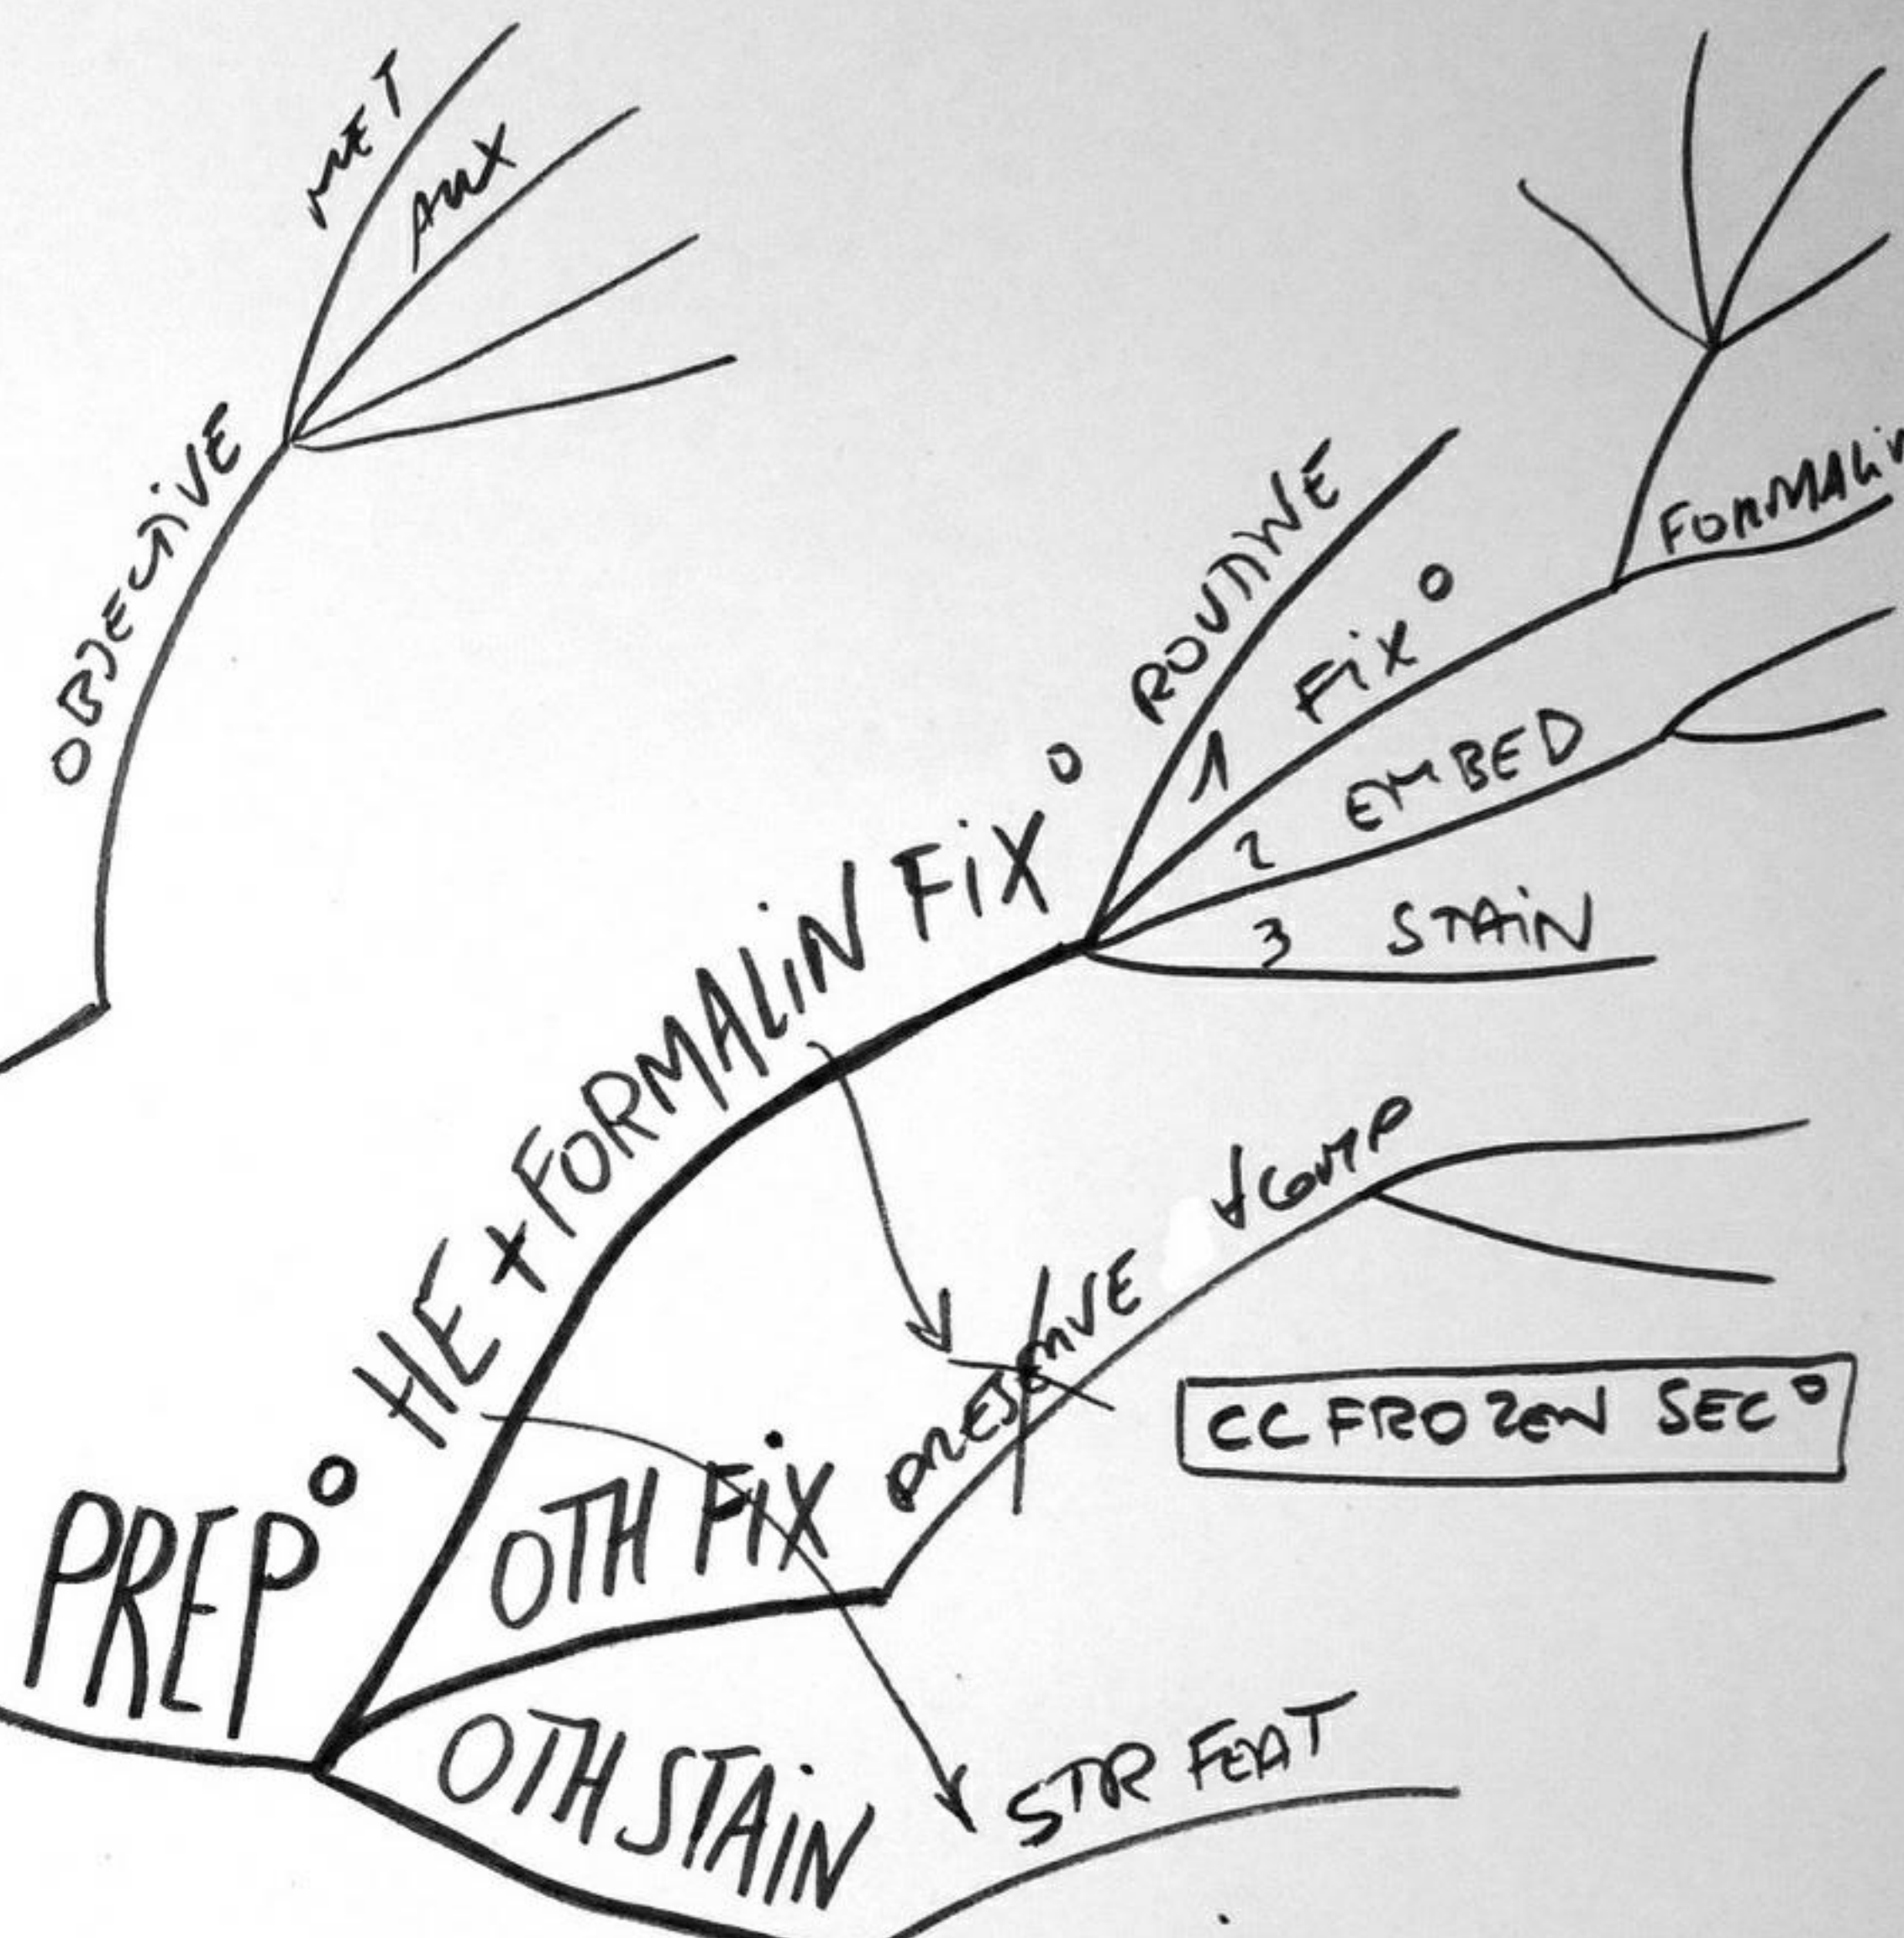 MET
AUX
OBJECTIVE
PREP°
HE + FORMALIN FIX°
ROUTINE
1 FIX°
FORMALIN
2 EMBED
3 STAIN
OTH FIX
PRESERVE
↓ COMP
CC FROZEN SEC°
OTH STAIN
STR FEAT